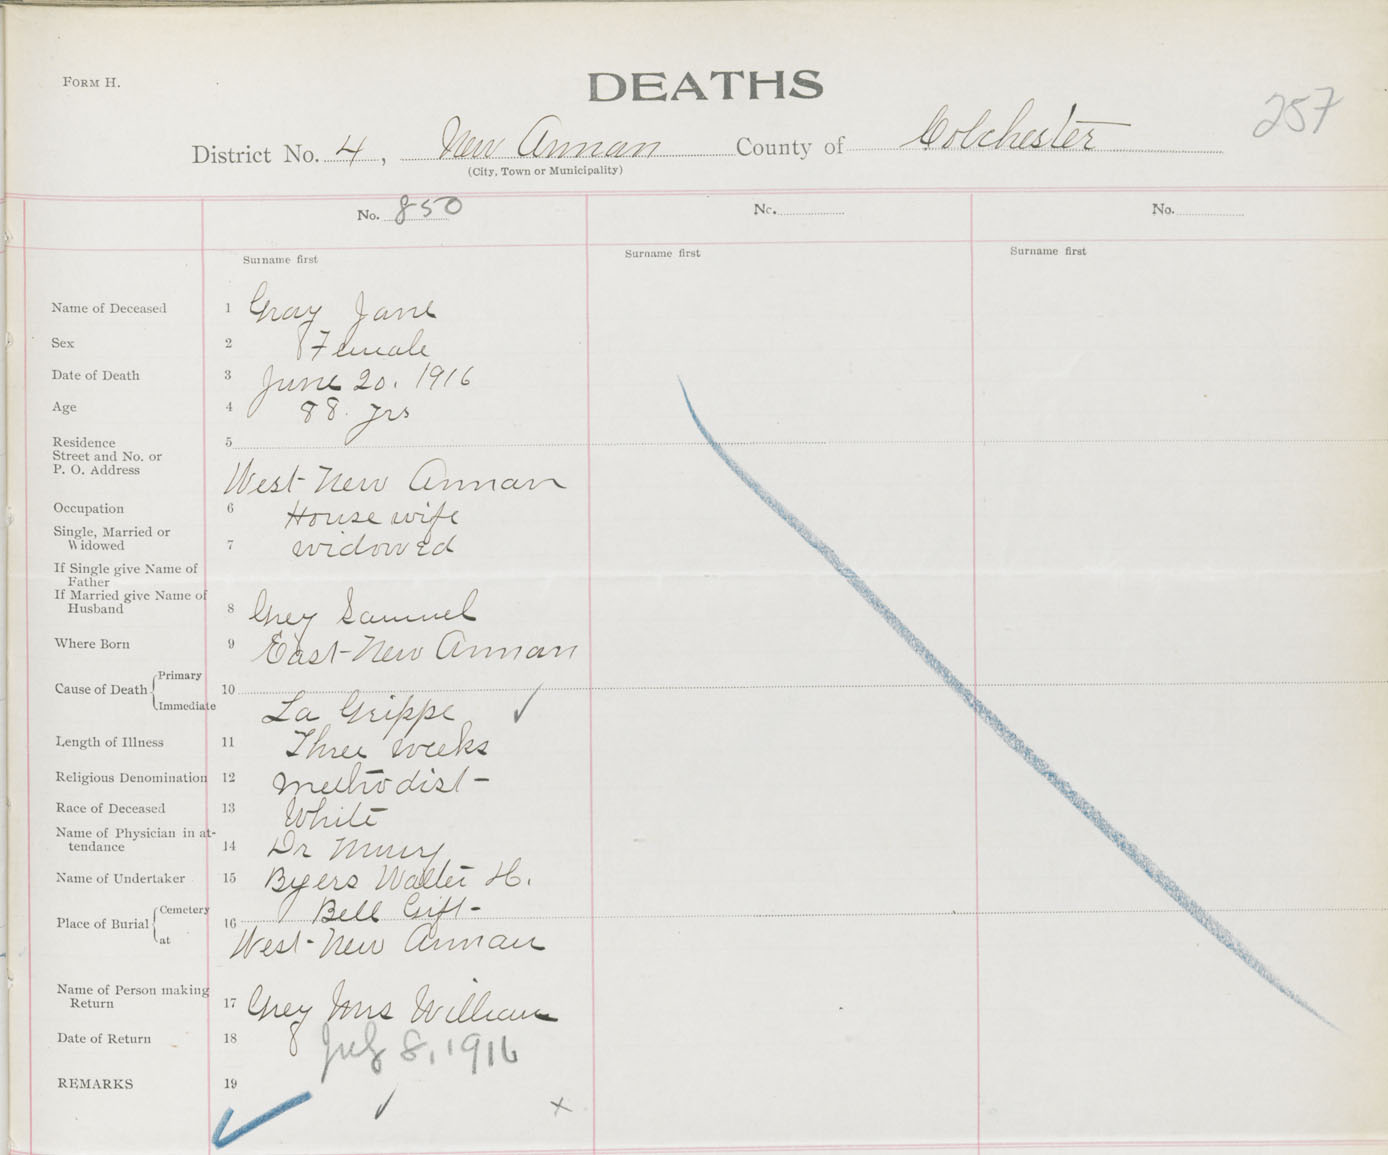 FORM H.
DEATHS
257
District No. 4, New Annan County of Colchester
(City, Town or Municipality)
No. 850
No.
No.
Surname first
Surname first
Surname first
Name of Deceased 1 Gray Jane
Sex 2 Female
Date of Death 3 June 20. 1916
Age 4 88 yrs
Residence 5
Street and No. or
P. O. Address
West New Annan
Occupation 6 House wife
Single, Married or
Widowed 7 widowed
If Single give Name of
Father
If Married give Name of
Husband 8 Grey Samuel
Where Born 9 East New Annan
Cause of Death Primary 10
Immediate La Grippe
Length of Illness 11 Three weeks
Religious Denomination 12 Methodist
Race of Deceased 13 White
Name of Physician in at-
tendance 14 Dr
Name of Undertaker 15 Byers Walter H.
Place of Burial Cemetery 16 Bell Grift
at West New Annan
Name of Person making
Return 17 Grey Mrs William
Date of Return 18 July 8, 1916
REMARKS 19